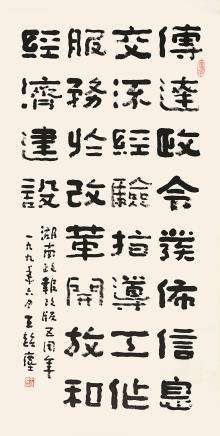 傳達政令發佈信息
交流經驗指導工作
服務於改革開放和
經濟建設
湖南政報改版五周年
一九九年六月王超塵